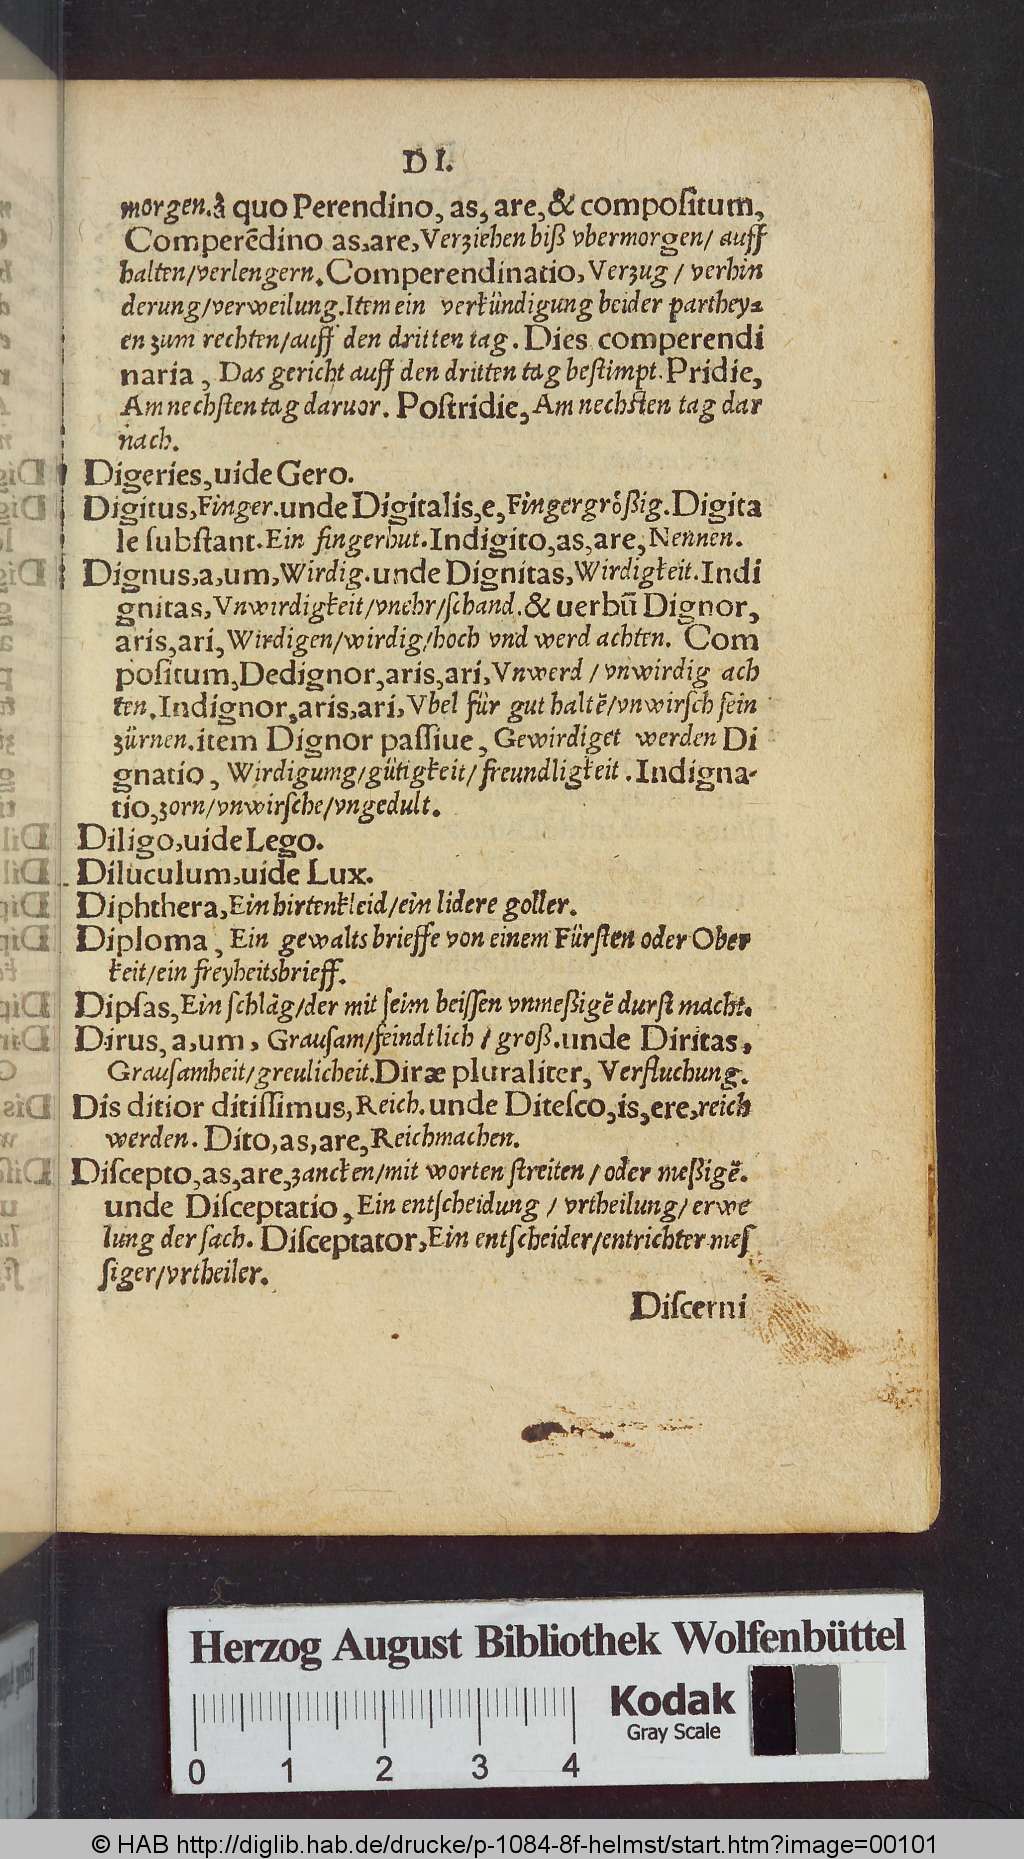 DI.
morgen. à quo Perendino, as, are, & compoſitum,
Comperēdino as, are, Verziehen biß vbermorgen/ auff
halten/verlengern. Comperendinatio, Verzug / verhin
derung/verweilung. Item ein verkündigung beider parthey⸗
en zum rechten/auff den dritten tag. Dies comperendi
naria, Das gericht auff den dritten tag beſtimpt. Pridie,
Am nechſten tag daruor. Poſtridie, Am nechſten tag dar
nach.
Digeries, uide Gero.
Digitus, Finger. unde Digitalis, e, Fingergrößig. Digita
le ſubſtant. Ein fingerhut. Indigito, as, are, Nennen.
Dignus, a, um, Wirdig. unde Dignitas, Wirdigkeit. Indi
gnitas, Vnwirdigkeit/vnehr/ſchand. & uerbū Dignor,
aris, ari, Wirdigen/wirdig/hoch vnd werd achten. Com
poſitum, Dedignor, aris, ari, Vnwerd / vnwirdig ach
ten. Indignor, aris, ari, Vbel für gut haltē/vnwirſch ſein
zürnen. item Dignor paſſiue, Gewirdiget werden Di
gnatio, Wirdigumg/gütigkeit/freundligkeit. Indigna-
tio, zorn/vnwirſche/vngedult.
Diligo, uide Lego.
Diluculum, uide Lux.
Diphthera, Ein hirtenkleid/ein lidere goller.
Diploma, Ein gewalts brieffe von einem Fürſten oder Ober
keit/ein freyheitsbrieff.
Dipſas, Ein ſchläg/der mit ſeim beiſſen vnmeßigē durſt macht.
Dirus, a, um, Grauſam/feindtlich / groß. unde Diritas,
Grauſamheit/greulicheit. Diræ pluraliter, Verfluchung.
Dis ditior ditiſſimus, Reich. unde Diteſco, is, ere, reich
werden. Dito, as, are, Reichmachen.
Diſcepto, as, are, zancken/mit worten ſtreiten / oder meßigē.
unde Diſceptatio, Ein entſcheidung / vrtheilung/ erwe
lung der ſach. Diſceptator, Ein entſcheider/entrichter meſ
ſiger/vrtheiler.
Diſcerni
Herzog August Bibliothek Wolfenbüttel
Kodak
Gray Scale
0 1 2 3 4
© HAB http://diglib.hab.de/drucke/p-1084-8f-helmst/start.htm?image=00101